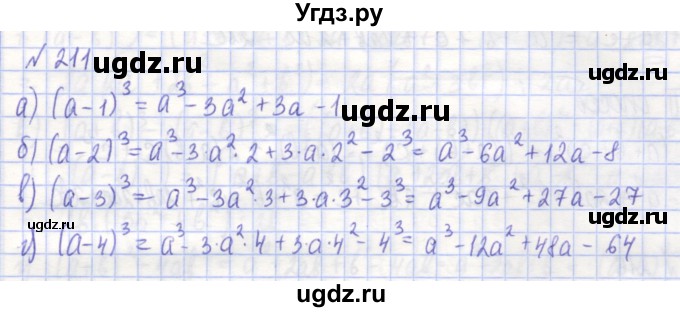 Угдз.ру
№ 211
ugdz.ru
а) (a-1)³ = a³ - 3a² + 3a - 1
ugdz.ru
б) (a-2)³ = a³ - 3·a²·2 + 3·a·2² - 2³ = a³ - 6a² + 12a - 8
в) (a-3)³ = a³ - 3a²·3 + 3·a·3² - 3³ = a³ - 9a² + 27a - 27
ugdz.ru
ugdz.ru
г) (a-4)³ = a³ - 3·a²·4 + 3·a·4² - 4³ = a³ - 12a² + 48a - 64
ugdz.ru